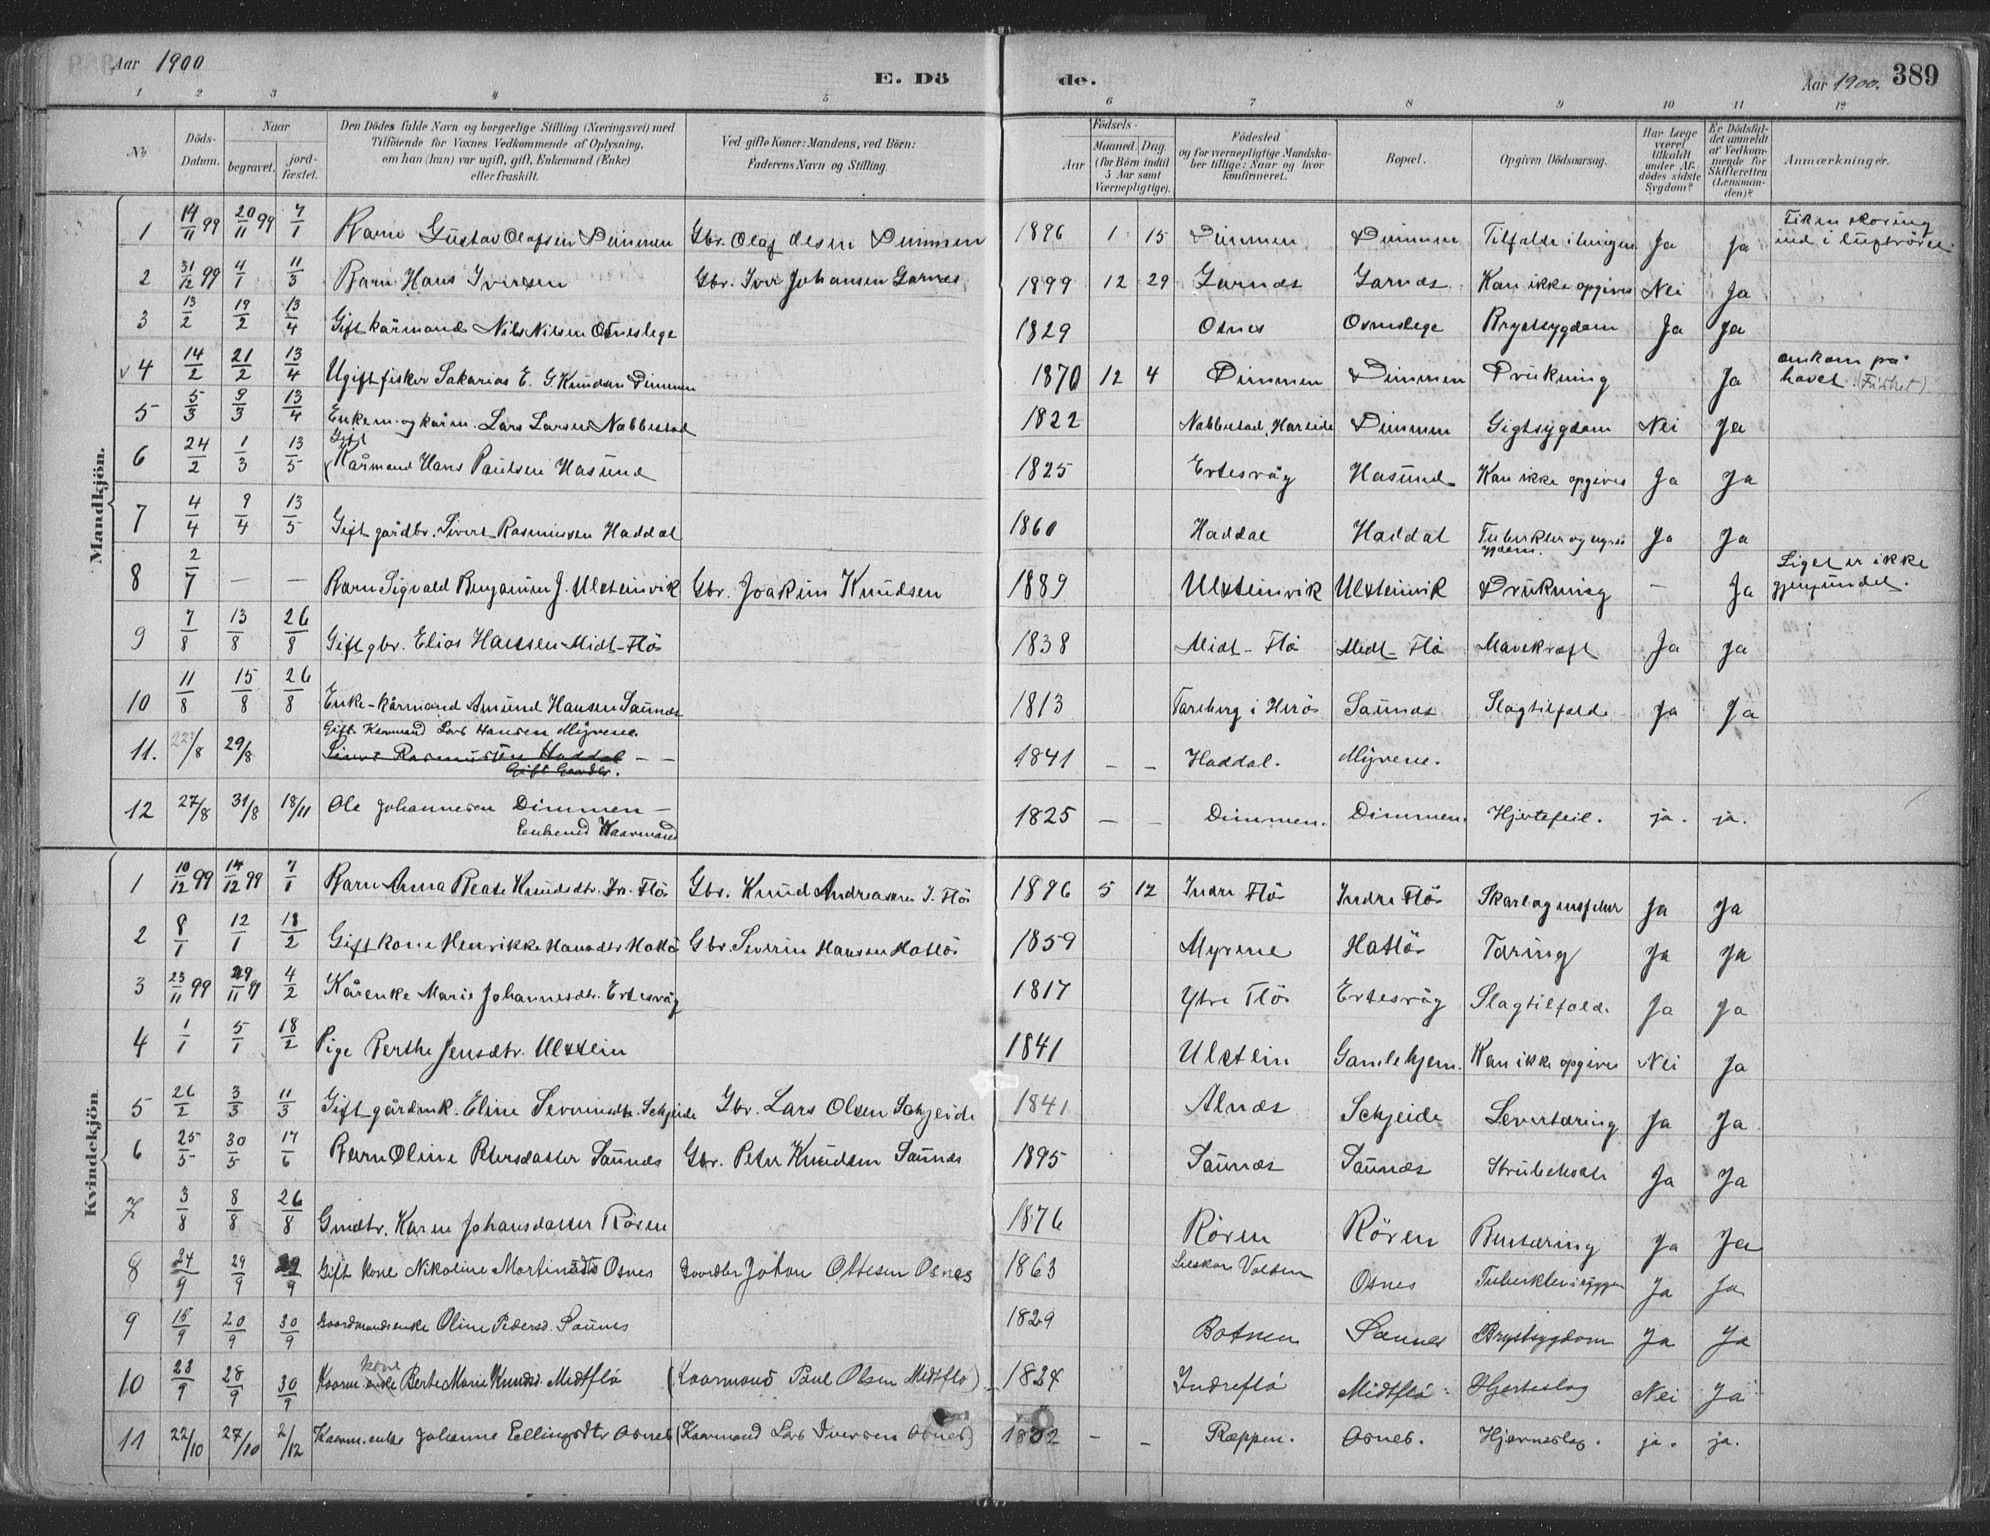 Aar 1900
E. Dö
de.
Aar 1900.
389
1 2 3 4 5 6 7 8 9 10 11 12
No
Döds-Datum.
Naar
begravet.
jord-fæstet.
Den Dödes fulde Navn og borgerlige Stilling (Næringsvei) med
Tilföiende for Voxnes Vedkommende af Oplysning,
om han (hun) var ugift, gift, Enkemand (Enke)
eller fraskilt.
Ved gifte Koner: Mandens, ved Börn:
Faderens Navn og Stilling.
Födsels-
Aar
Maaned. Dag.
(for Börn indtil
5 Aar samt
Værnepligtige).
Födested
og for værnepligtige Mandska-
ber tillige: Naar og hvor
konfirmeret.
Bopæl.
Opgiven Dödsaarsag.
Har Læge
været
tilkaldt
under Af-
dödes sidste
Sygdom?
Er Dödsfal-
det anmeldt
af Vedkom-
mende for
Skifteretten
(Lensman-
den)?
Anmærkninger.
Mandkjön.
1 14/11 99 20/11 99 7/1 Barn Gustav Olafsen Dimmen Gbr. Olaf Olsen Dimmen 1896 1 15 Dimmen Dimmen Tilfælde i lungen Ja Ja ind i luftröret.
2 31/12 99 4/1 11/3 Barn Hans Iversen Gbr. Iver Johansen Garnes 1899 12 29 Garnæs Garnæs Kan ikke opgives Nei Ja
3 13/2 19/2 13/4 Gift kårmand Nils Nilsen Osneslege 1829 Osnes Osneslege Brystsygdom Ja Ja
v 4 14/2 21/2 13/4 Ugift fisker Sakarias E. G. Knudsen Dimmen 1870 12 4 Dimmen Dimmen Drukning Ja omkom på havet (Fisket)
5 5/3 9/3 13/4 Enkem. og kårm. Lars Larsen Nabbestad 1822 Nabbestad, Hareide Dimmen Gigtsygdom Nei Ja
6 24/2 1/3 13/5 Gift Kårmand Hans Paulsen Hasund 1825 Ertesvåg Hasund Kan ikke opgives Ja Ja
7 4/4 9/4 13/5 Gift gårdbr. Sivert Rasmussen Haddal 1860 Haddal Haddal Ja Ja
8 2/7 — — Barn Sigvald Benjamin J. Ulsteinvik Gbr. Joakim Knudsen 1889 Ulsteinvik Ulsteinvik Drukning — Ja Liget er ikke gjenfundet.
9 7/8 13/8 26/8 Gift gbr. Elias Hansen Midt-Flö 1838 Midt-Flö Midt-Flö Mavekræft Ja Ja
10 11/8 15/8 26/8 Enke-kårmand Amund Hansen Saunæs 1813 Tarberg i Herö Saunæs Slagtilfælde Ja Ja
11. 22/8 29/8 Gift Kaarmand Lars Hansen Myrene. 1841 — — Haddal. Myrene.
Sivert Rasmussen Haddal — —
Gift Gaardbr.
12 27/8 31/8 18/11 Ole Johannesen Dimmen — 1825 — — Dimmen. Dimmen. Hjertefeil. ja. ja.
Enkemd Kaarmand
Kvindekjön
1 10/12 99 14/12 99 7/1 Barn Anna Beate Knudsdtr. In. Flö Gbr. Knud Andreassen I. Flö 1896 5 12 Indre Flö Indre Flö Skarlagensfeber Ja Ja
2 8/1 12/1 18/2 Gift kone Henrikke Hansdtr Hatlö Gbr. Severin Hansen Hatlö 1859 Myrene Hatlö Tæring Ja Ja
3 23/11 99 29/11 99 4/2 Kårenke Marie Johannesdtr. Ertesvåg 1817 Ytre Flö Ertesvåg Slagtilfælde Ja Ja
4 1/1 5/1 18/2 Pige Berthe Jensdtr. Ulstein 1841 Ulstein Gamlehjem. Kan ikke opgives Nei Ja
5 26/2 3/3 11/3 Gift gårdmk. Eline Severinsdtr. Schjeide Gbr. Lars Olsen Schjeide 1841 Alnæs Schjeide Levertæring Ja Ja
6 25/5 30/5 17/6 Barn Oline Petersdatter Saunæs Gbr. Peter Knudsen Saunæs 1895 Saunæs Saunæs Strubehoste Ja Ja
7 3/8 8/8 26/8 Gmdtr. Karen Johansdatter Rören 1876 Rören Rören Bentæring Ja Ja
8 24/9 29/9 29/9 Gift kone Nikoline Martinsdtr Osnes Gaardbr Johan Ottesen Osnes 1863 Volden Osnes Tuberkler i ryggen Ja Ja
9 15/9 20/9 30/9 Gaardmandsenke Oline Pedersd. Saunes 1829 Botnen Saunes Brystsygdom Ja Ja
10 23/9 28/9 30/9 Kaarm enke kone Berte Marie Knudsd. Midtflö (Kaarmand Paul Olsen Midtflö) 1824 Indreflö Midtflö Hjerteslag Nei Ja
11 22/10 27/10 2/12 Kaarm.enke Johanne Ellingsdtr Osnes (Kaarmand Lars Iversen Osnes) 1832 — — Ræppen. Osnes. Hjerneslag. ja. ja.